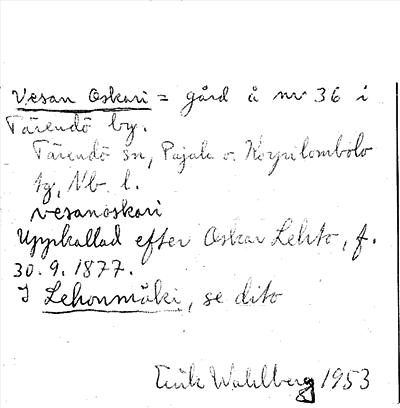 Vesan Oskari = gård å nr 36 i
Tärendö by.
Tärendö sn, Pajala o. Korpilombolo
tg, Nb. l.
vesanoskari
Uppkallad efter Oskar Lehto, f.
30.9.1877.
I Lehonmäki, se dito
Erik Wahlberg 1953